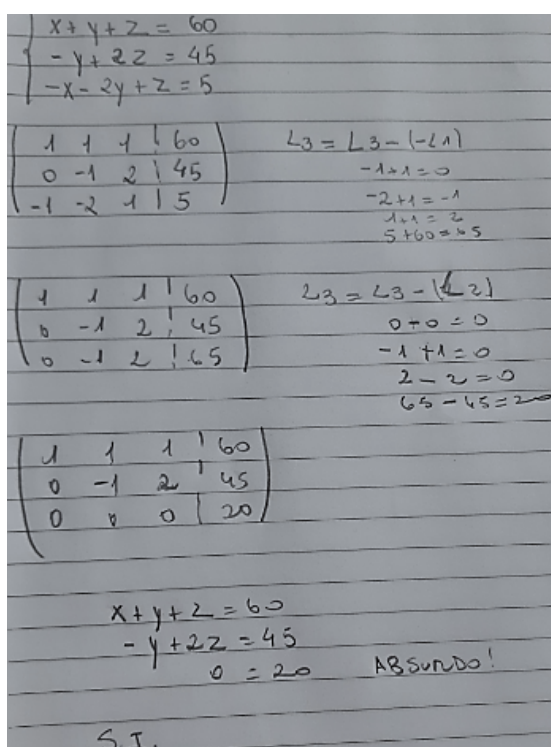 x + y + z = 60
- y + 2z = 45
-x - 2y + z = 5
1 1 1 | 60
0 -1 2 | 45
-1 -2 1 | 5
L3 = L3 - (-L1)
-1+1=0
-2+1=-1
1+1=2
5+60=65
1 1 1 | 60
0 -1 2 | 45
0 -1 2 | 65
L3 = L3 - (L2)
0+0=0
-1+1=0
2-2=0
65-45=20
1 1 1 | 60
0 -1 2 | 45
0 0 0 | 20
x + y + z = 60
- y + 2z = 45
0 = 20 ABSURDO!
S.I.